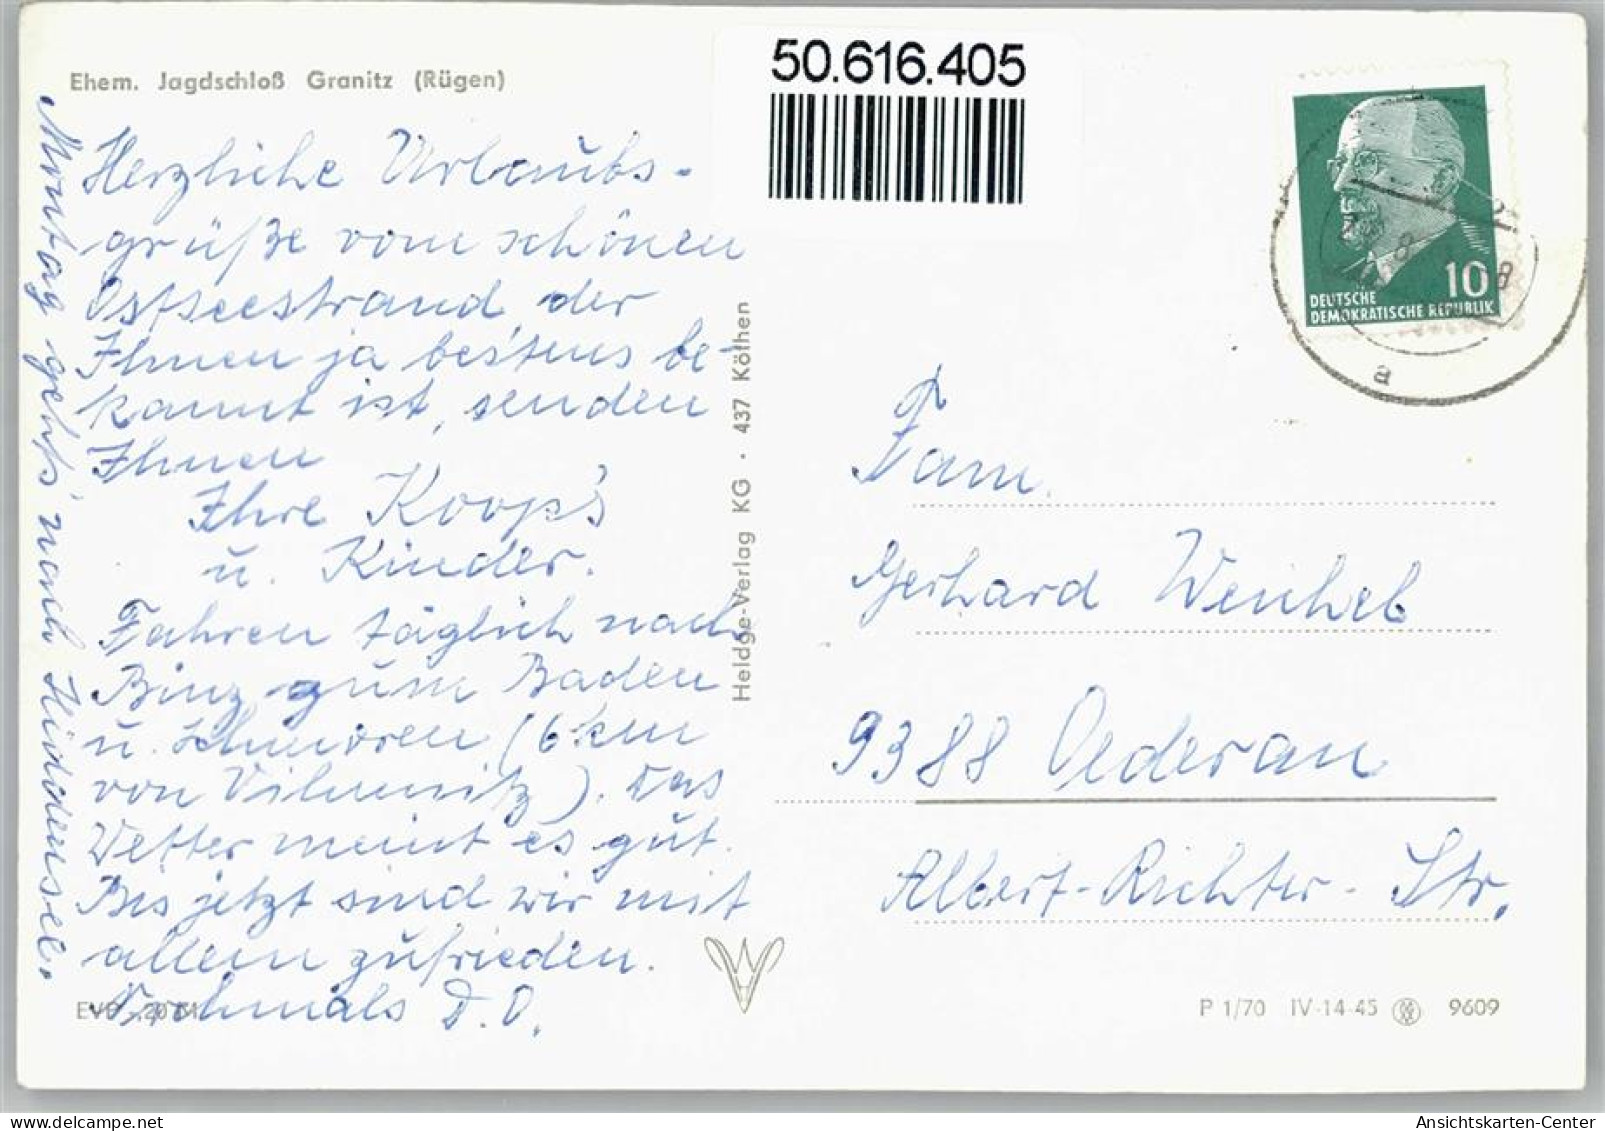 Ehem. Jagdschloß Granitz (Rügen)
50.616.405
Herzliche Urlaubs-
grüße vom schönen
Ostseestrand der
Ihnen ja bestens be-
kannt ist, senden
Ihnen
Ihre Koop's
u. Kinder.
Fahren täglich nach
Binz zum Baden
u. Schmoren (6 km
von Vilmnitz). Das
Wetter meint es gut.
Bis jetzt sind wir mit
allem zufrieden.
Nochmals D. O.
Montag geht's nach Hiddensee.
EVP
Heldge-Verlag KG · 437 Köthen
10
DEUTSCHE
DEMOKRATISCHE REPUBLIK
a
Fam.
Gerhard Weichel
9388 Oederan
Albert-Richter-Str.
P 1/70 IV-14-45 9609
Ansichtskarten-Center